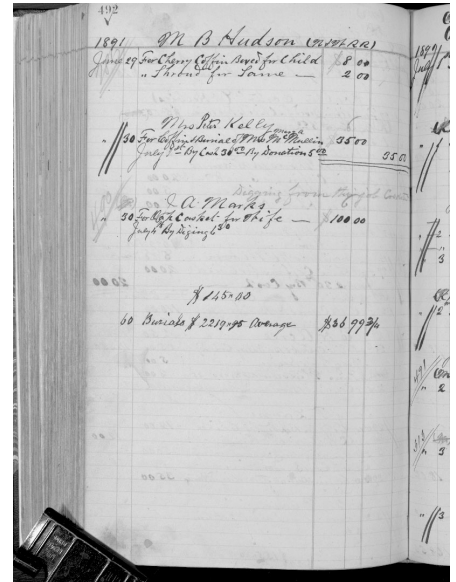 492
1891 M B Hudson (N&W RR)
June 29 For Cherry Coffin Boxed for Child 8 00
" Shroud for Same — 2 00
Mrs Peter Kelly
" 30 For Coffin & Burial of Mrs McMullin 35 00
July 1st By Cash 30 00 By Donation 5 00 35 00
J A Marks
" 30 For Casket for Wife — 100 00
July By
$145.00
60 Burials $2219.45 Average $36 99